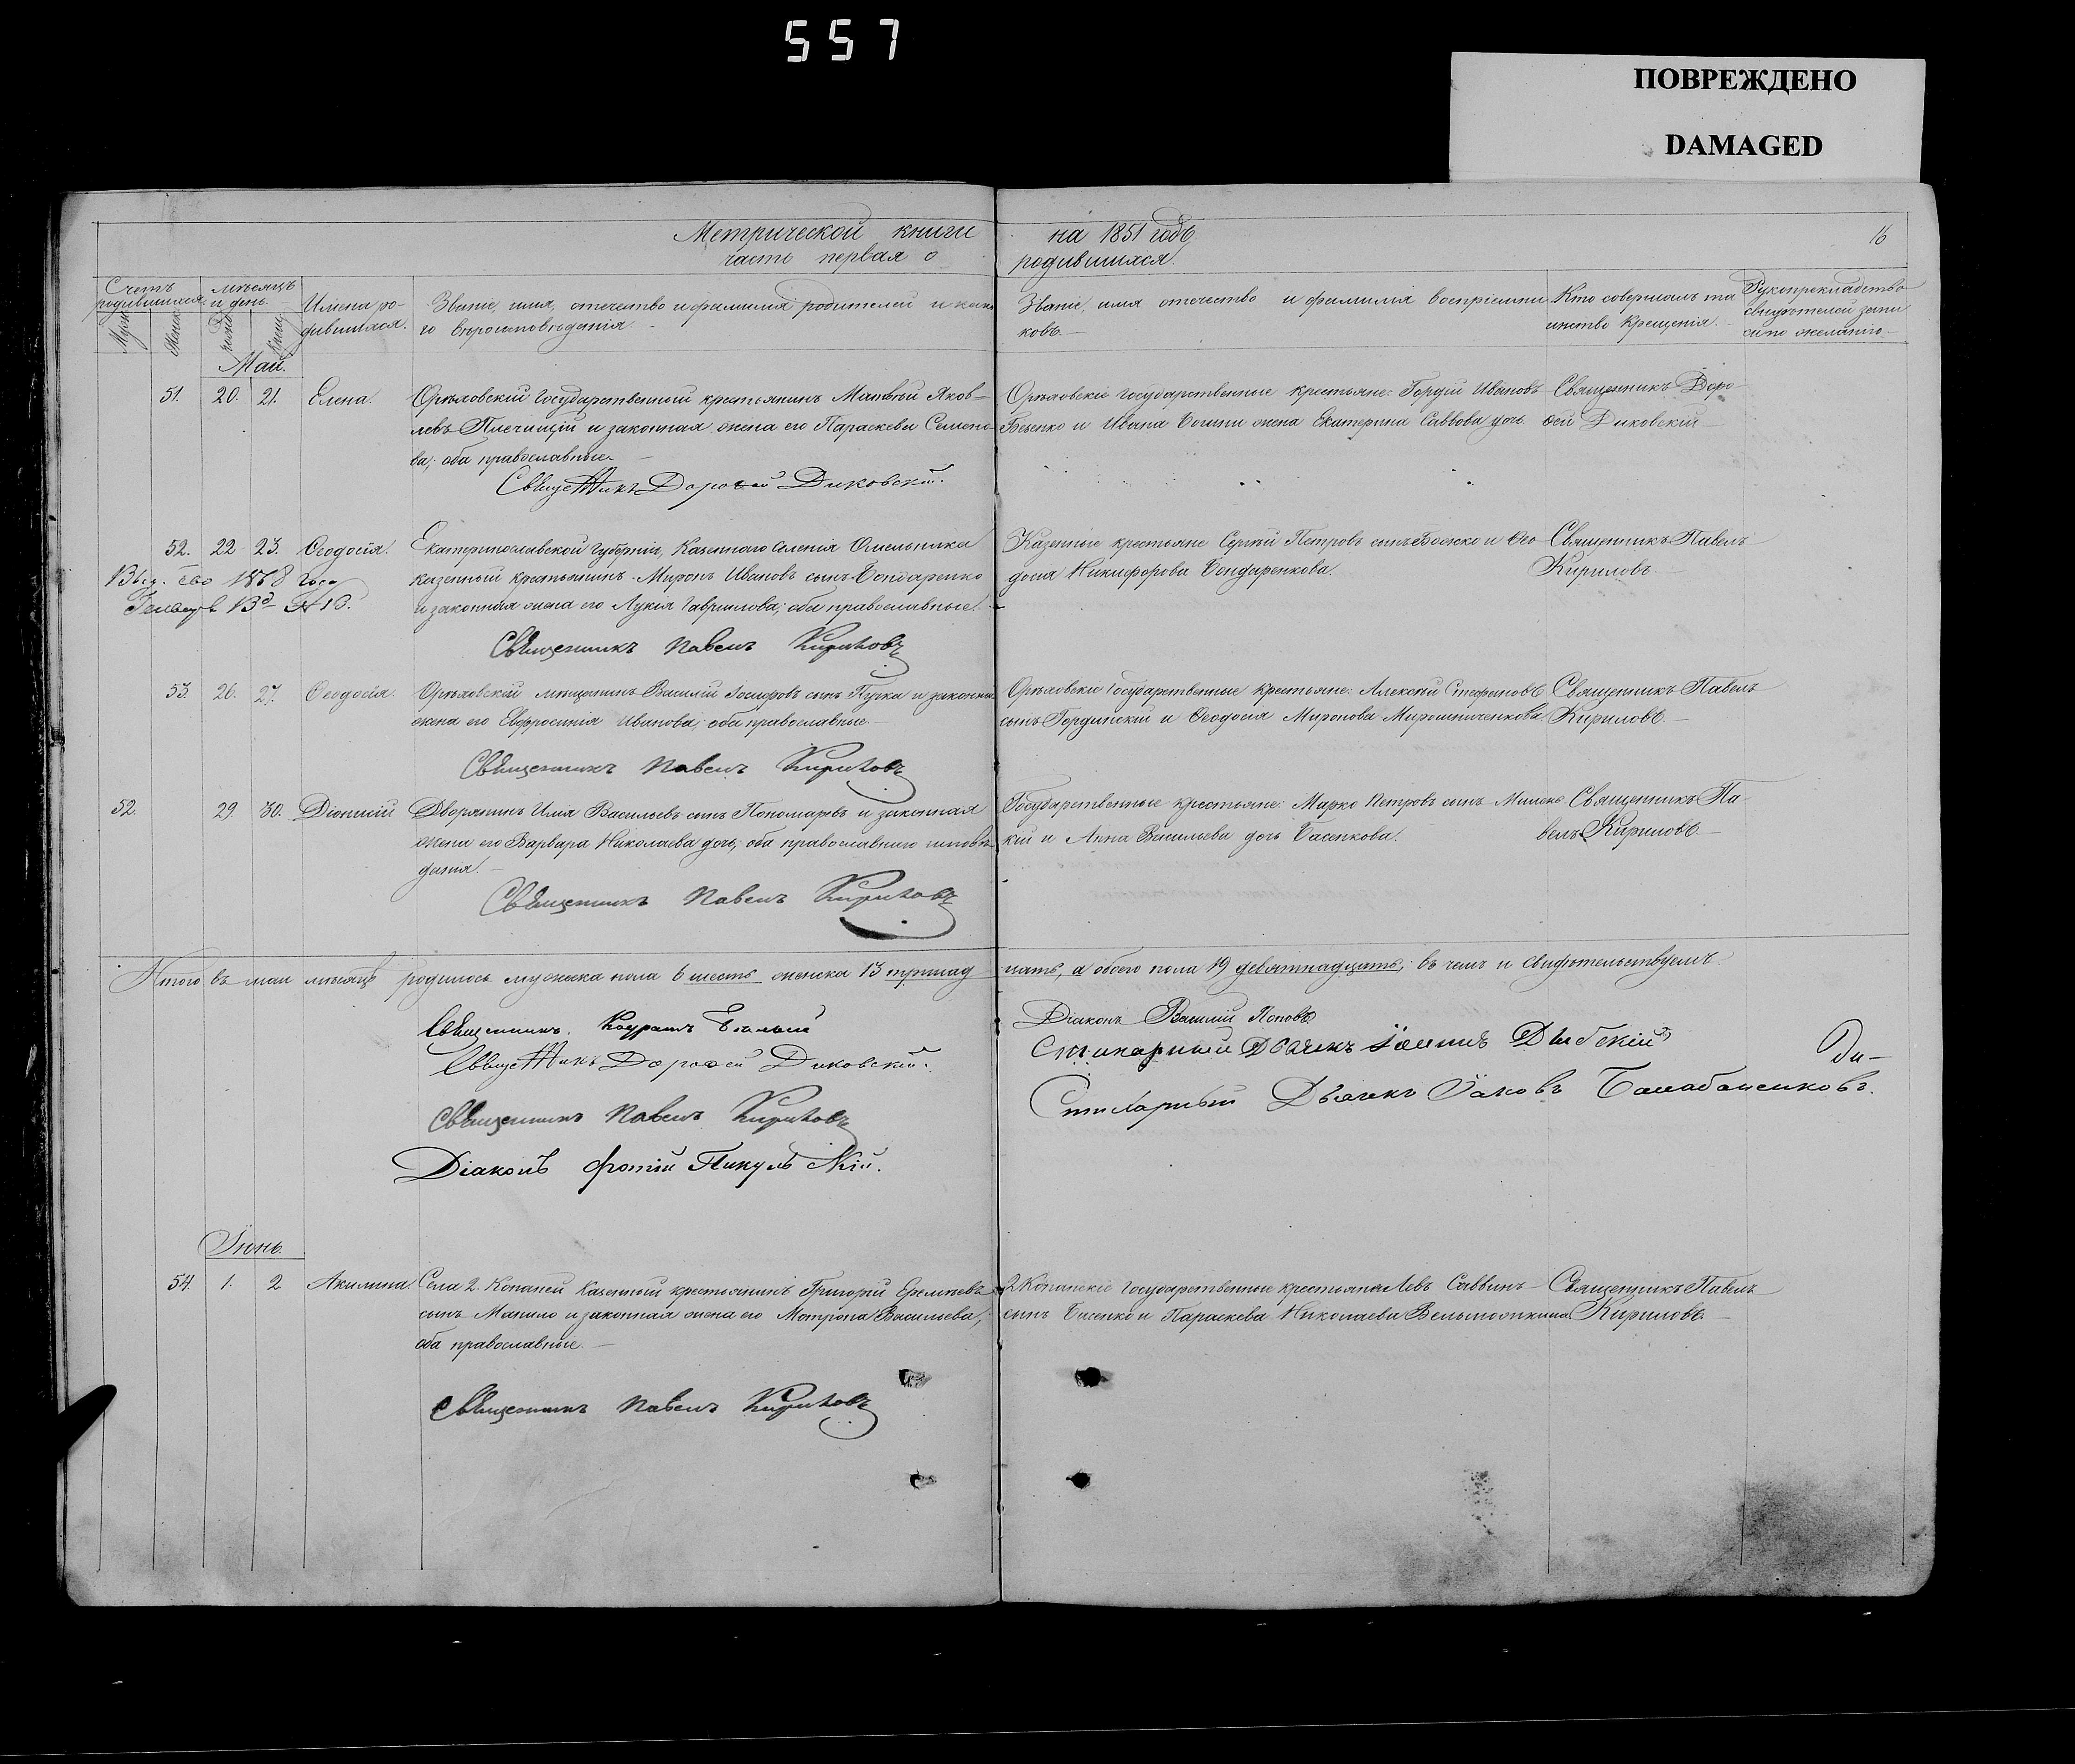 557
ПОВРЕЖДЕНО
DAMAGED
Метрической книги на 1851 годъ 16
часть первая о родившихся.
Счетъ родившихся.
Муж. Женск.
мѣсяцъ и день.
Имена родившихся.
Званіе, имя, отечество и фамилія родителей и како
го вѣроисповѣданія.
Званіе, имя отечество и фамилія воспріемни
ковъ.
Кто совершалъ та
инство крещенія.
Рукоприкладство
свидѣтелей запи
си по желанію.
Май.
51. 20. 21. Елена.
Орѣховскій Государственный крестьянинъ Матвѣй Яков-
левъ и законная жена его Параскева Семено-
ва; оба православные.
Священникъ Дорофей Диковскій.
Орѣховскіе Государственные крестьяне: Гордѣй Ивановъ
и Ивана жена Екатерина Саввова дочь.
Священникъ Доро-
фей Диковскій
52. 22 23. Ѳеодосія.
1868 года
Екатеринославской Губерніи, Казеннаго селенія Омельника
казенный крестьянинъ Миронъ Ивановъ сынъ Бондаренко
и законная жена его Лукія Гавриилова; оба православные.
Священникъ Павелъ Кириловъ
Казенные крестьяне Сергѣй Петровъ сынъ и Ѳео
досія Никифорова Бондаренкова.
Священникъ Павелъ
Кириловъ.
53. 26. 27. Ѳеодосія.
Орѣховскій мѣщанинъ Василій сынъ и законная
жена его Евфросинія Иванова; оба православные.
Священникъ Павелъ Кириловъ
Орѣховскіе Государственные крестьяне: Алексѣй Стефановъ
сынъ Гординскій и Ѳеодосія Миронова Мирошниченкова.
Священникъ Павелъ
Кириловъ.
52. 29. 30. Діонисій
Дворянинъ Илія Васильевъ сынъ Пономаревъ и законная
жена его Варвара Николаева дочь; оба православнаго исповѣ
данія.
Священникъ Павелъ Кириловъ
Государственные крестьяне: Марко Петровъ сынъ
кій и Анна Васильева дочь Басенкова.
Священникъ Па-
велъ Кириловъ.
Итого въ маи мѣсяцѣ родилось мужеска пола 6 шесть женска 13 тринад
цать, а обоего пола 19 девятнадцать; въ чемъ и свидѣтельствуемъ.
Священникъ Кодратъ
Священникъ Дорофей Диковскій.
Священникъ Павелъ Кириловъ
Діаконъ Фотій
Діаконъ Василій Поповъ
Стихарный Дьячекъ
Стихарный Дьячкъ Іаковъ Балабаненковъ.
Ди-
Іюнь.
54. 1. 2 Акилина.
Села 2. Копаней Казенный крестьянинъ Григорій Еремѣевъ
сынъ и законная жена его Матрона Васильева,
оба православные.
Священникъ Павелъ Кириловъ
2 Копанскіе Государственные крестьяне Левъ Саввинъ
сынъ Басенко и Параскева Николаева
Священникъ Павелъ
Кириловъ.